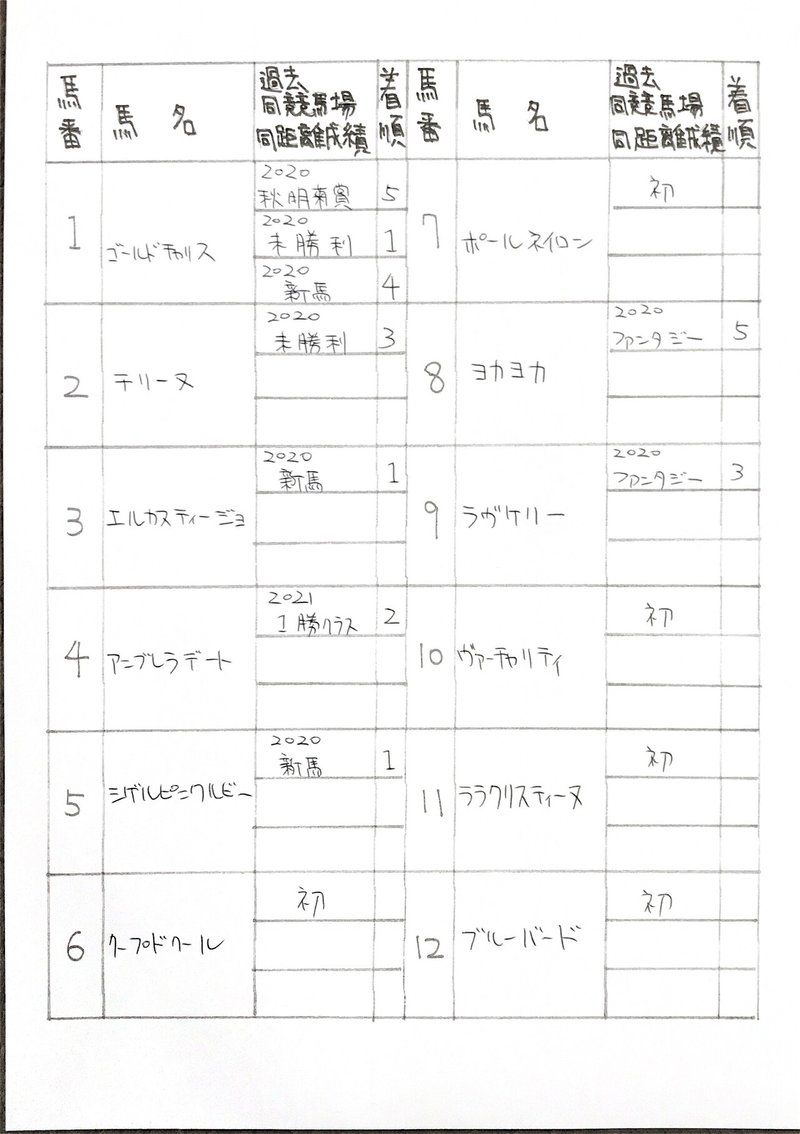 馬番 馬名 過去同競馬場同距離成績 着順 馬番 馬名 過去同競馬場同距離成績 着順
1 ゴールドチャリス
2020 秋明菊賞 5
2020 未勝利 1
2020 新馬 4
2 テリーヌ
2020 未勝利 3
3 エルカスティージョ
2020 新馬 1
4 アンブレラデート
2021 1勝クラス 2
5 シゲルピンクルビー
2020 新馬 1
6 クープドクール
初
7 ポールネイロン
初
8 ヨカヨカ
2020 ファンタジー 5
9 ラヴケリー
2020 ファンタジー 3
10 ヴァーチャリティ
初
11 ララクリスティーヌ
初
12 ブルーバード
初